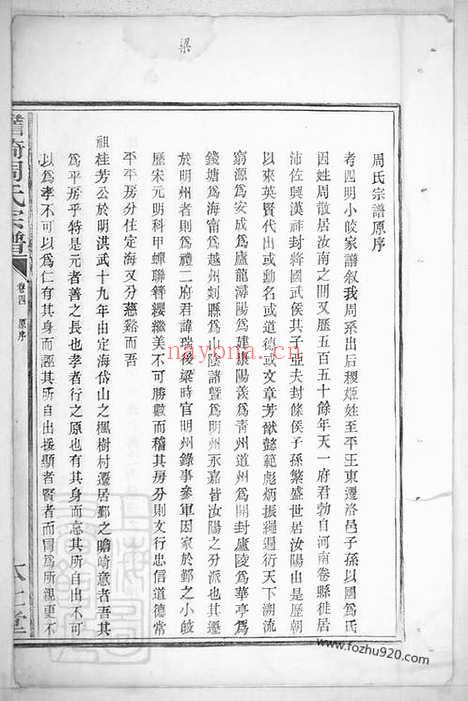 梁
周氏宗譜原序
考四明小皎家譜叙我周系出后稷姬姓至平王東遷洛邑子孫以國為氏
因姓周散居汝南之間又歷五百五十餘年天一府君勃自河南卷縣徙居
沛佐興漢神封將國武侯其子亞夫封條侯子孫繁盛世居汝陽由是歷朝
以來英賢代出或勳名或道德或文章芳猷懿範彪炳振繩遡于今溯流
窮源為安成為廬龍潯陽為建康陽羨為青州道州為開封廬陵為華亭為
錢塘為海甯為越州剡縣為山陰諸暨為明州永嘉皆汝陽之分派也其遷
於明州者則為禮二府君諱瑞後梁時官明州錄事參軍因家於鄞之小皎
歷宋元明科甲蟬聯簪纓繼美不可勝數而稽其房分則文行忠信道德常
平平房分住定海又分慈谿而吾
祖桂芳公於明洪武十九年由定海岱山之楓樹村遷居鄞之瞻崎意者吾其
為平房乎特是元者善之長也孝者行之原也有其身而忘其所自出不可
以為孝不可以為仁有其身而誣其所自出援顯者賢者而冒為所親更不
瞻崎周氏宗譜
卷四 原序
六七堂
nayona.cn
www.fozhu920.com